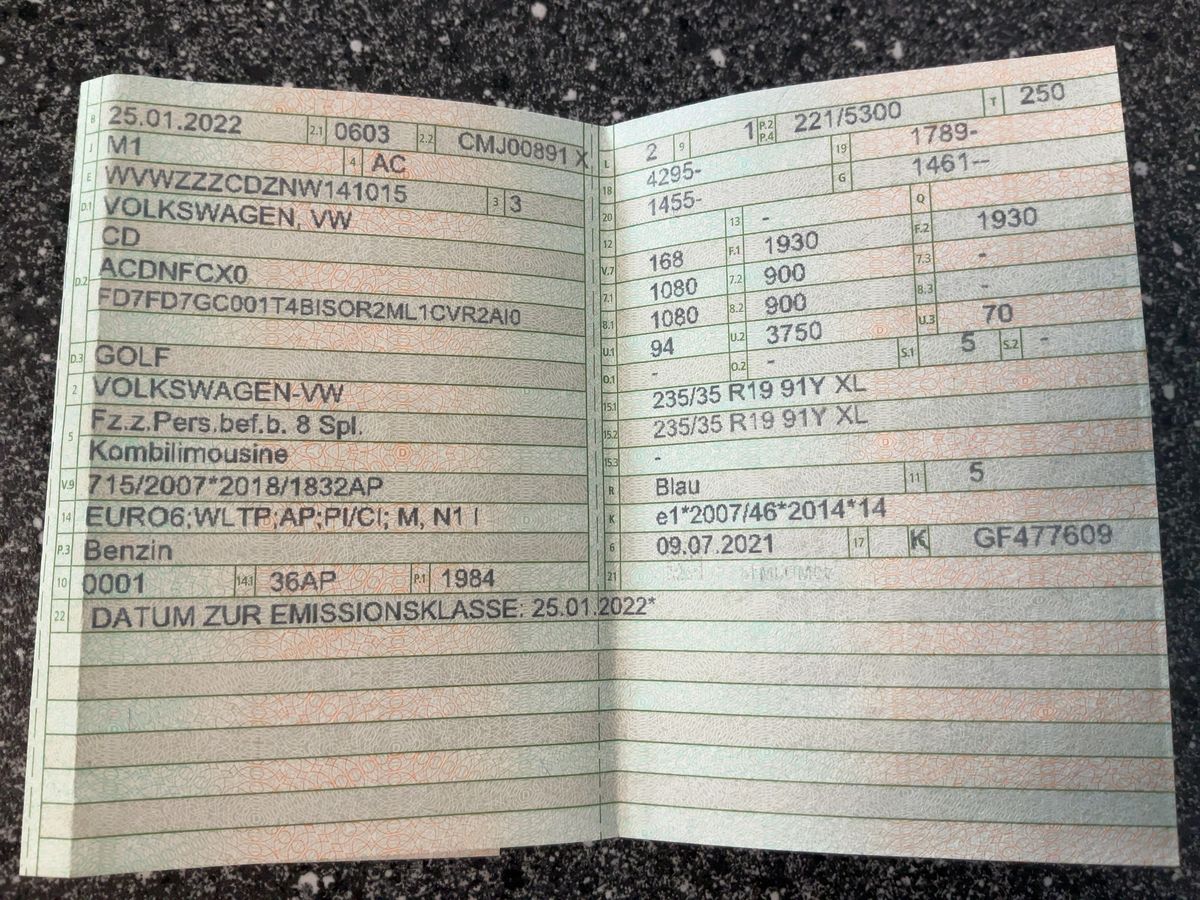 B 25.01.2022 2.1 0603 2.2 CMJ00891 X
J M1 4 AC
E WVWZZZCDZNW141015 3 3
D.1 VOLKSWAGEN, VW
CD
D.2 ACDNFCX0
FD7FD7GC001T4BISOR2ML1CVR2AI0
D.3 GOLF
2 VOLKSWAGEN-VW
5 Fz.z.Pers.bef.b. 8 Spl.
Kombilimousine
V.9 715/2007*2018/1832AP
14 EURO6;WLTP;AP;PI/CI; M, N1 I
P.3 Benzin
10 0001 14.1 36AP P.1 1984
22 DATUM ZUR EMISSIONSKLASSE: 25.01.2022*
L 2 9 1 P.2 P.4 221/5300 T 250
18 4295- 19 1789-
20 1455- G 1461--
12 13 - Q
V.7 168 F.1 1930 F.2 1930
7.1 1080 7.2 900 7.3 -
8.1 1080 8.2 900 8.3 -
U.1 94 U.2 3750 U.3 70
O.1 - O.2 - S.1 5 S.2 -
15.1 235/35 R19 91Y XL
15.2 235/35 R19 91Y XL
15.3 -
R Blau 11 5
K e1*2007/46*2014*14
6 09.07.2021 17 K GF477609
21